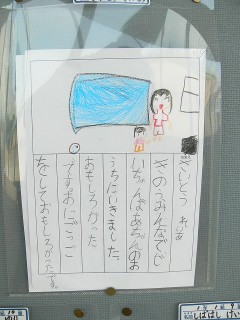 さいとう れいあ
きのうみんなでじ
いちゃんばあちゃんのお
うちにいきました。
おもしろかった
ですおにごっこ
をしておもしろかったです。
しばはし けい